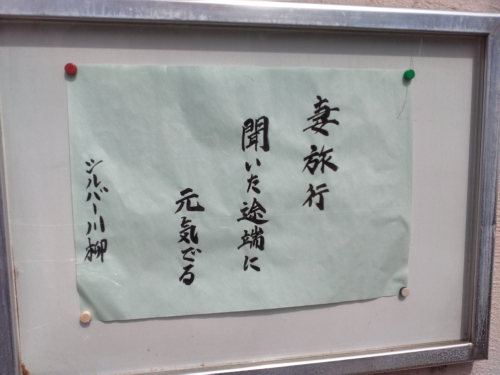 妻旅行
聞いた途端に
元気でる
シルバー川柳